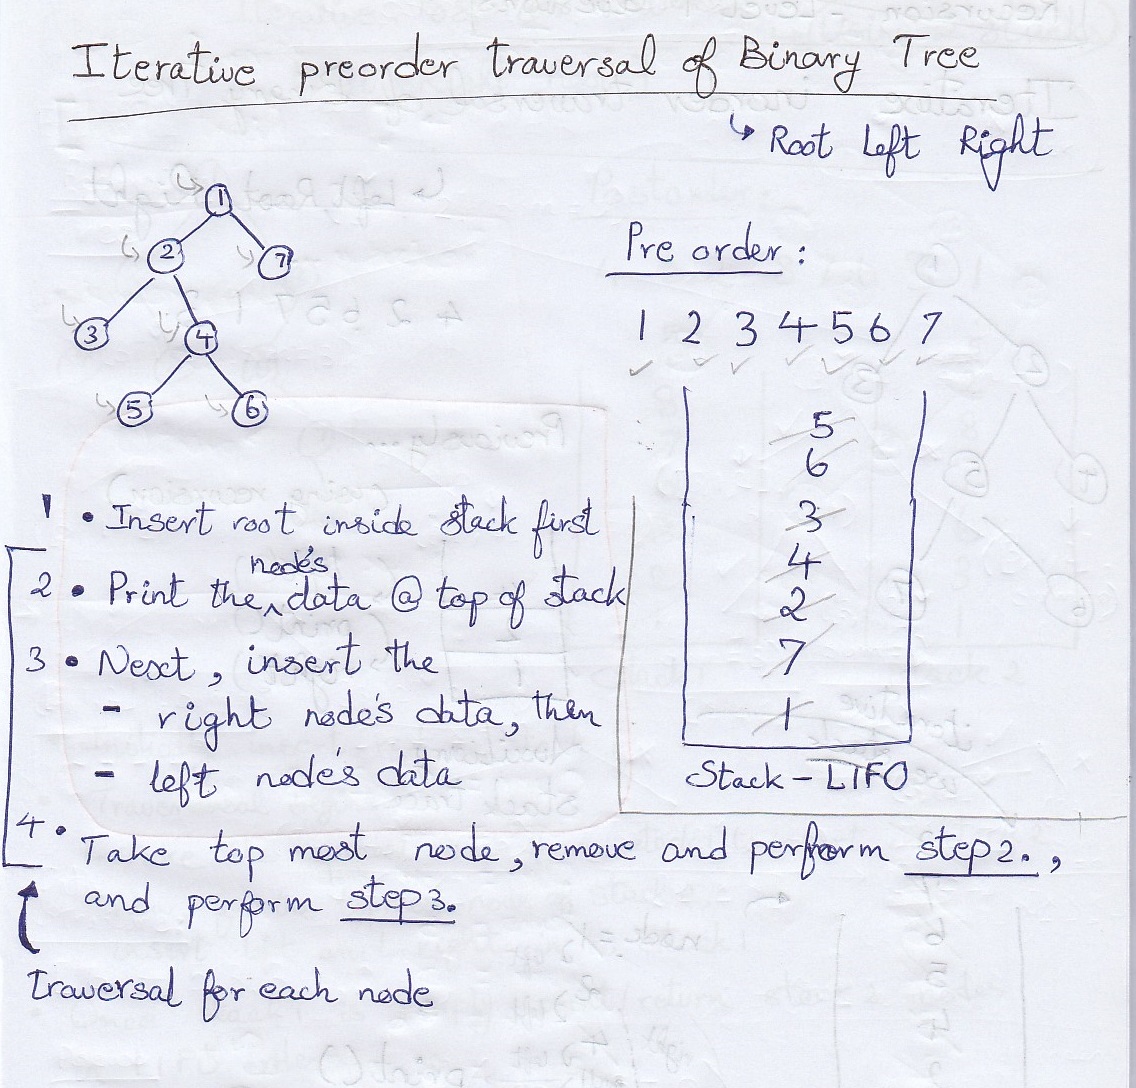 Iterative preorder traversal of Binary Tree
↳ Root Left Right
1
2 7
3 4
5 6
Pre order :
1 2 3 4 5 6 7
5
6
3
4
2
7
1
Stack - LIFO
1 • Insert root inside stack first
2 • Print the node's data @ top of stack
3 • Next, insert the
- right node's data, then
- left node's data
4 • Take top most node, remove and perform step 2.,
and perform step 3.
Traversal for each node